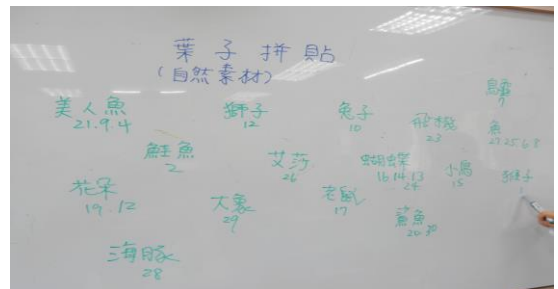 葉子拼貼
(自然素材)
美人魚
21.9.4
獅子
12
兔子
10
飛機
23
7
魚
27 25 6 8
鮭魚
2
艾莎
26
蝴蝶
16.14.13
24
小鳥
15
猴子
1
花朵
19.12
大象
29
老鼠
17
鯊魚
海豚
28